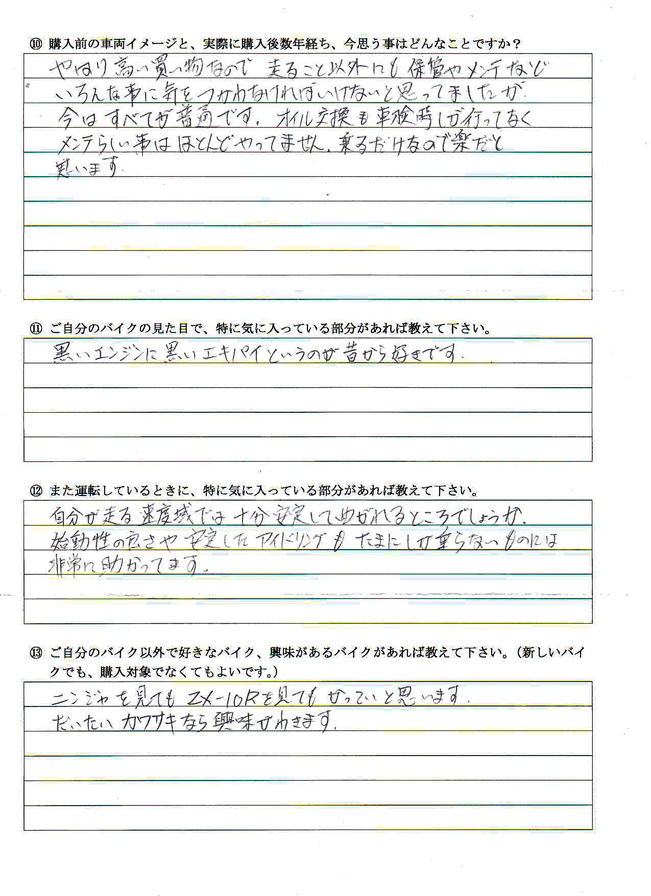 ⑩ 購入前の車両イメージと、実際に購入後数年経ち、今思う事はどんなことですか？
やはり高い買い物なので 走ること以外にも 保管やメンテなど
いろんな事に気をつかわなければいけないと思ってましたが
今はすべてが普通です。オイル交換も車検時しか行ってなく
メンテらしい事は ほとんどやってません。乗るだけなので楽だと
思います。
⑪ ご自分のバイクの見た目で、特に気に入っている部分があれば教えて下さい。
黒いエンジンに黒いエキパイというのが昔から好きです。
⑫ また運転しているときに、特に気に入っている部分があれば教えて下さい。
自分が走る速度域では十分安定して曲がれるところでしょうか。
始動性の良さや 安定したアイドリングも たまにしか乗らないものには
非常に助かってます。
⑬ ご自分のバイク以外で好きなバイク、興味があるバイクがあれば教えて下さい。（新しいバイ
クでも、購入対象でなくてもよいです。）
ニンジャを見ても ZX-10Rを見ても かっていいと思います。
だいたい カワサキなら興味がわきます。